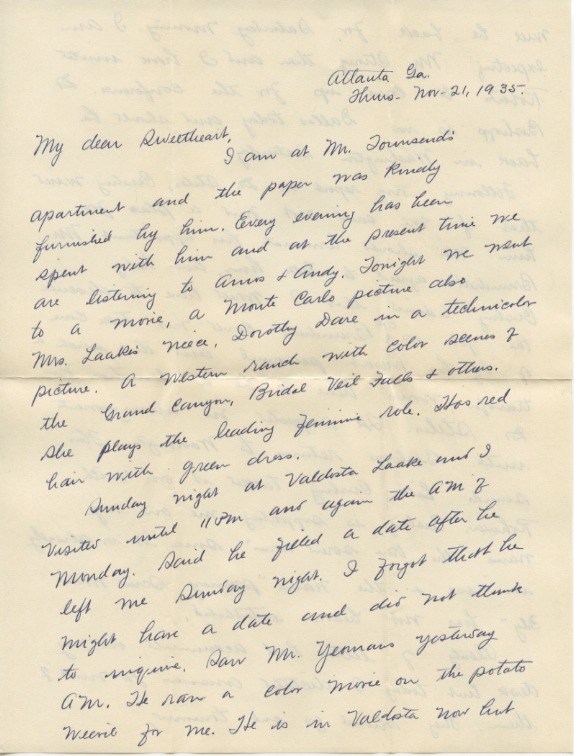 Atlanta Ga.
Thurs- Nov-21, 1935.
My dear Sweetheart,
I am at Mr. Townsend's
apartment and the paper was kindly
furnished by him. Every evening has been
spent with him and at the present time we
are listening to Amos & Andy. Tonight we went
to a movie, a Monte Carlo picture also
Mrs. Laakes neice, Dorothy Dare in a technicolor
picture. A Western ranch with color scenes of
the Grand Canyon, Bridal Veil Falls & others.
She plays the leading feminie role. Has red
hair with green dress.
Sunday night at Valdosta Laake and I
visited until 11 PM and again the A.M of
Monday. Said he filled a date after he
left me Sunday night. I forgot that he
might have a date and did not think
to inquire. Saw Mr. Yeomans yesterday
A.M. He ran a color movie on the potato
weevil for me. He is in Valdosta now but